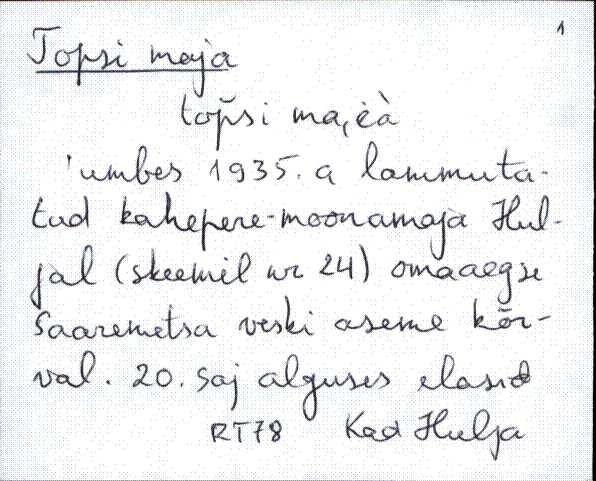 1
Topsi maja
top̆si ma,i̯à
'umbes 1935. a lammuta-
tud kahepere-moonamaja Hul-
jal (skeemil nr 24) omaaegse
Saaremetsa veski aseme kõr-
val. 20. saj alguses elasid
RT78 Kad Hulja